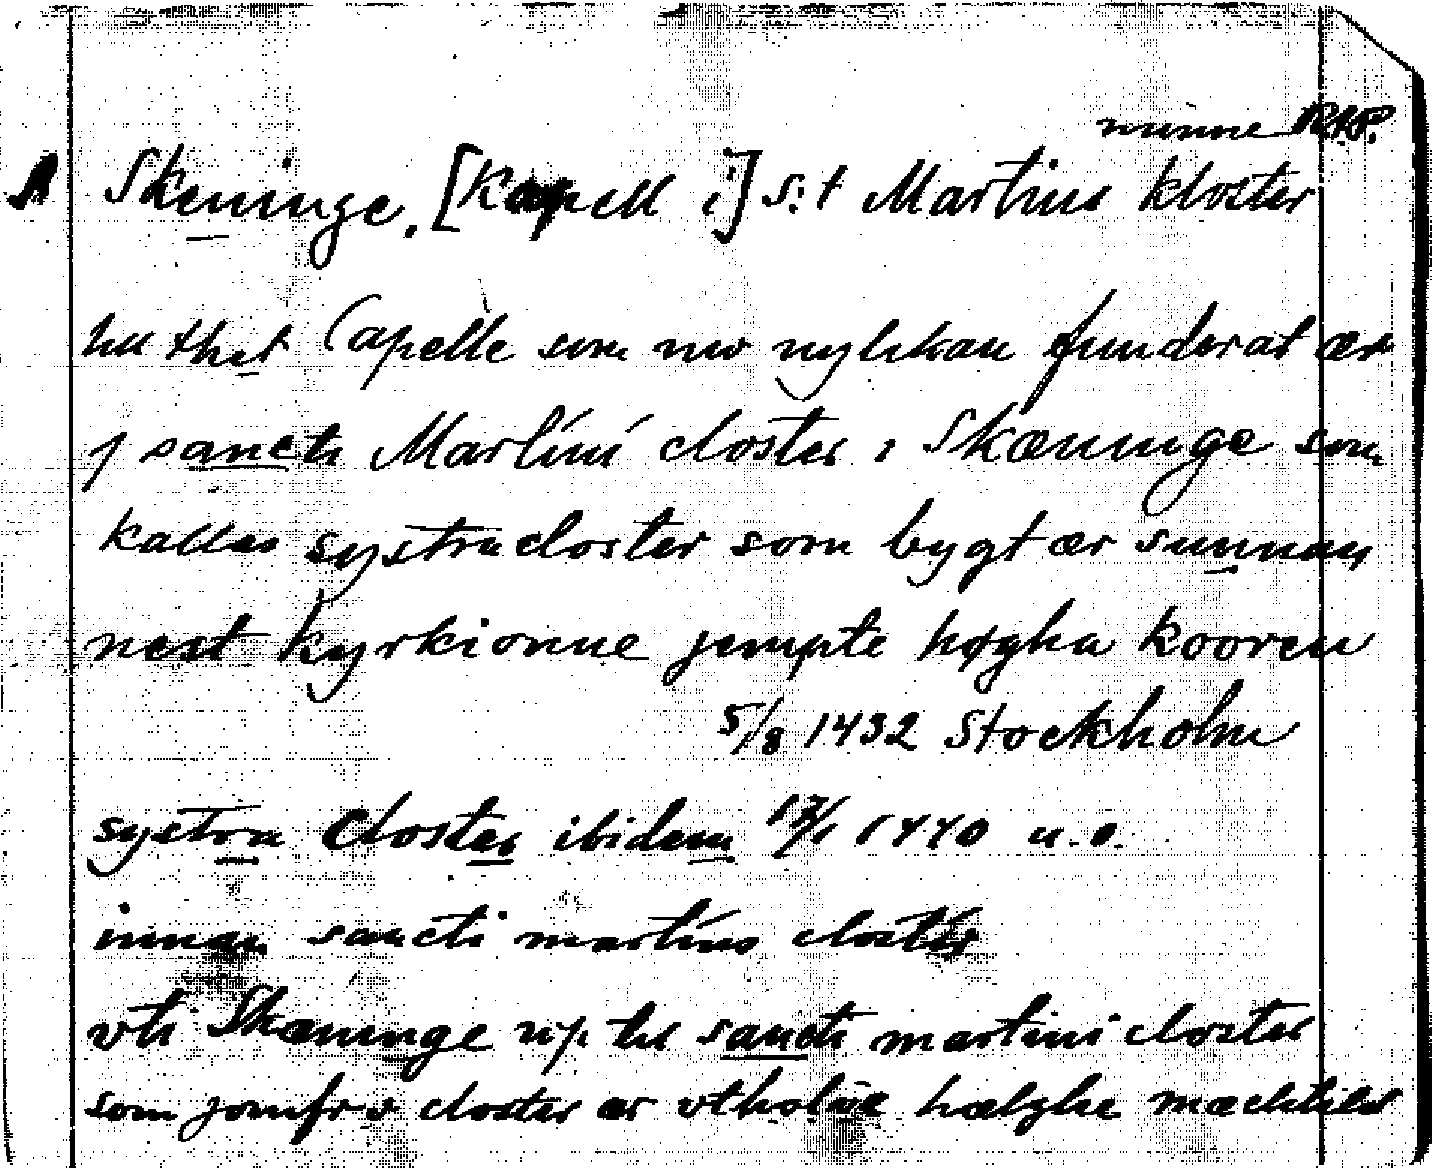 nunne RAP.
Skeninge. [Kapell i] S:t Martins kloster
till thet Capelle som nw nylikan funderat ær
j sancti Martini closter i Skæninge som
kallas systracloster som bygt ær sunnan
nest kyrkionne jempte høgha kooren
5/8 1432 Stockholm
systra closter ibidem 17/1 1440 u.o.
innan sancti martins closter
vti Skæninge up til sancti martini closter
som jomfrv closter ær hælghe mæchtild